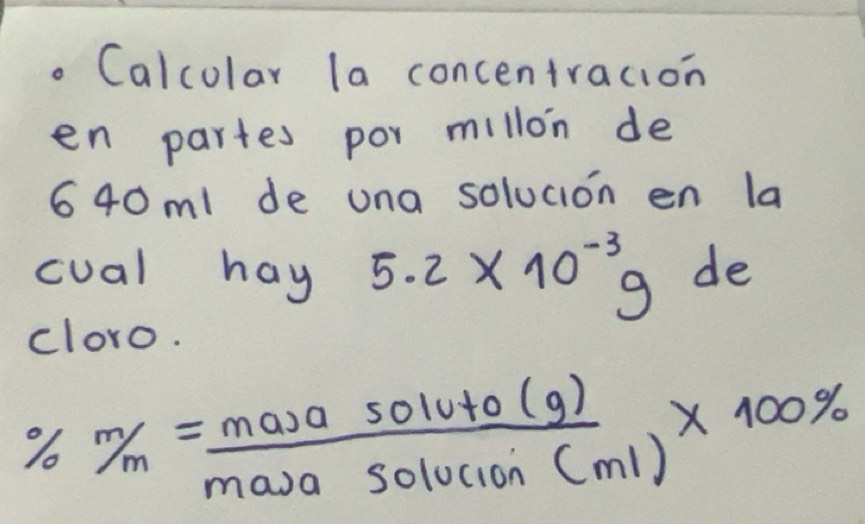 • Calcular la concentración
en partes por millón de
640 ml de una solución en la
cual hay 5.2 × 10⁻³ g de
cloro.
% m/m = masa soluto (g) / masa solución (ml) × 100%